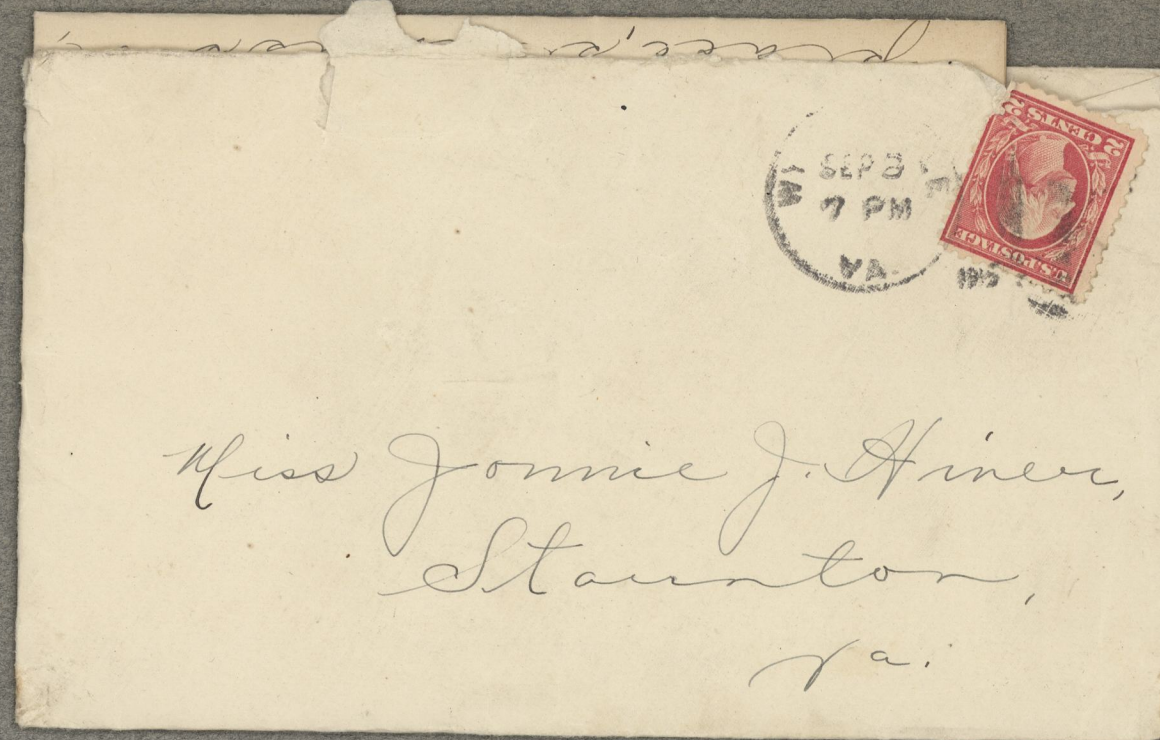 place,
SEP 3
7 PM
VA.
1915
2 CENTS 2
U.S. POSTAGE
Miss Jonnie J. Hiner,
Staunton,
Va.